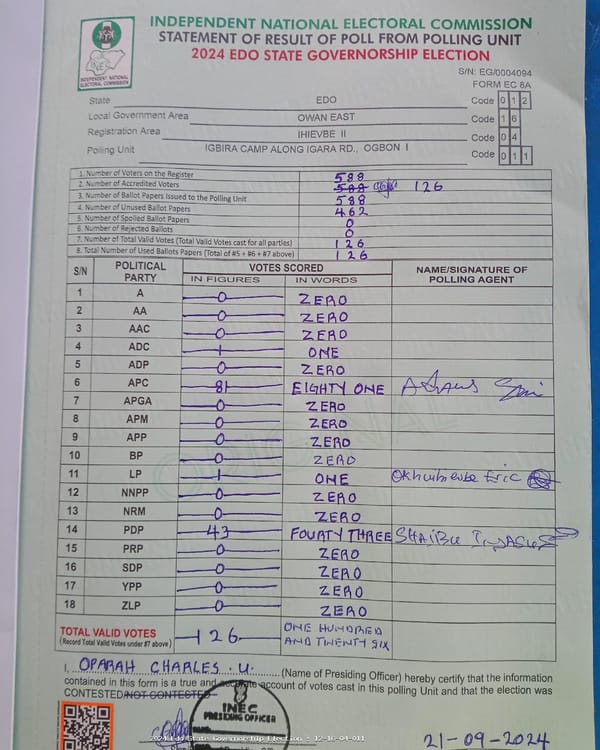 INDEPENDENT NATIONAL ELECTORAL COMMISSION
STATEMENT OF RESULT OF POLL FROM POLLING UNIT
2024 EDO STATE GOVERNORSHIP ELECTION
INEC
INDEPENDENT NATIONAL
ELECTORAL COMMISSION
S/N: EG/0004094
FORM EC 8A
State EDO Code 0 1 2
Local Government Area OWAN EAST Code 1 6
Registration Area IHIEVBE II Code 0 4
Polling Unit IGBIRA CAMP ALONG IGARA RD., OGBON I Code 0 1 1
1. Number of Voters on the Register 588
2. Number of Accredited Voters 588 126
3. Number of Ballot Papers Issued to the Polling Unit 588
4. Number of Unused Ballot Papers 462
5. Number of Spoiled Ballot Papers 0
6. Number of Rejected Ballots 0
7. Number of Total Valid Votes (Total Valid Votes cast for all parties) 126
8. Total Number of Used Ballots Papers (Total of #5 + #6 + #7 above) 126
S/N POLITICAL PARTY VOTES SCORED NAME/SIGNATURE OF POLLING AGENT
IN FIGURES IN WORDS
1 A 0 ZERO
2 AA 0 ZERO
3 AAC 0 ZERO
4 ADC 1 ONE
5 ADP 0 ZERO
6 APC 81 EIGHTY ONE
7 APGA 0 ZERO
8 APM 0 ZERO
9 APP 0 ZERO
10 BP 0 ZERO
11 LP 1 ONE Eric
12 NNPP 0 ZERO
13 NRM 0 ZERO
14 PDP 43 FOURTY THREE SHAIBU
15 PRP 0 ZERO
16 SDP 0 ZERO
17 YPP 0 ZERO
18 ZLP 0 ZERO
TOTAL VALID VOTES 126 ONE HUNDRED
(Record Total Valid Votes under #7 above) AND TWENTY SIX
I, OPARAH CHARLES .U. (Name of Presiding Officer) hereby certify that the information
contained in this form is a true and account of votes cast in this polling unit and that the election was
CONTESTED/NOT CONTESTED
INEC
PRESIDING OFFICER
2024 Edo State Governorship Election - 12-16-04-011
21-09-2024